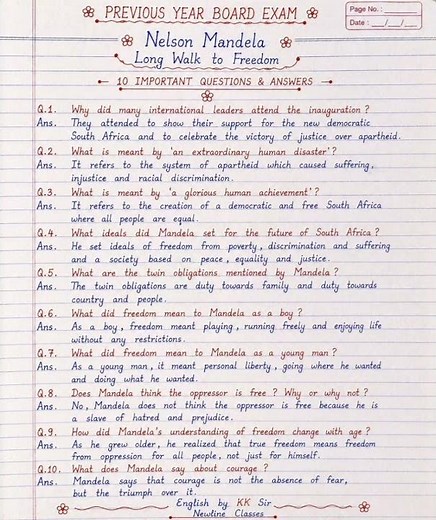 PREVIOUS YEAR BOARD EXAM
Page No. :
Date : __/__/__
Nelson Mandela
Long Walk to Freedom
10 IMPORTANT QUESTIONS & ANSWERS
Q.1. Why did many international leaders attend the inauguration ?
Ans. They attended to show their support for the new democratic
South Africa and to celebrate the victory of justice over apartheid.
Q.2. What is meant by 'an extraordinary human disaster'?
Ans. It refers to the system of apartheid which caused suffering,
injustice and racial discrimination.
Q.3. What is meant by 'a glorious human achievement'?
Ans. It refers to the creation of a democratic and free South Africa
where all people are equal.
Q.4. What ideals did Mandela set for the future of South Africa ?
Ans. He set ideals of freedom from poverty, discrimination and suffering
and a society based on peace, equality and justice.
Q.5. What are the twin obligations mentioned by Mandela ?
Ans. The twin obligations are duty towards family and duty towards
country and people.
Q.6. What did freedom mean to Mandela as a boy ?
Ans. As a boy, freedom meant playing, running freely and enjoying life
without any restrictions.
Q.7. What did freedom mean to Mandela as a young man ?
Ans. As a young man, it meant personal liberty, going where he wanted
and doing what he wanted.
Q.8. Does Mandela think the oppressor is free ? Why or why not ?
Ans. No, Mandela does not think the oppressor is free because he is
a slave of hatred and prejudice.
Q.9. How did Mandela's understanding of freedom change with age ?
Ans. As he grew older, he realized that true freedom means freedom
from oppression for all people, not just for himself.
Q.10. What does Mandela say about courage ?
Ans. Mandela says that courage is not the absence of fear,
but the triumph over it.
English by KK Sir
Newline Classes